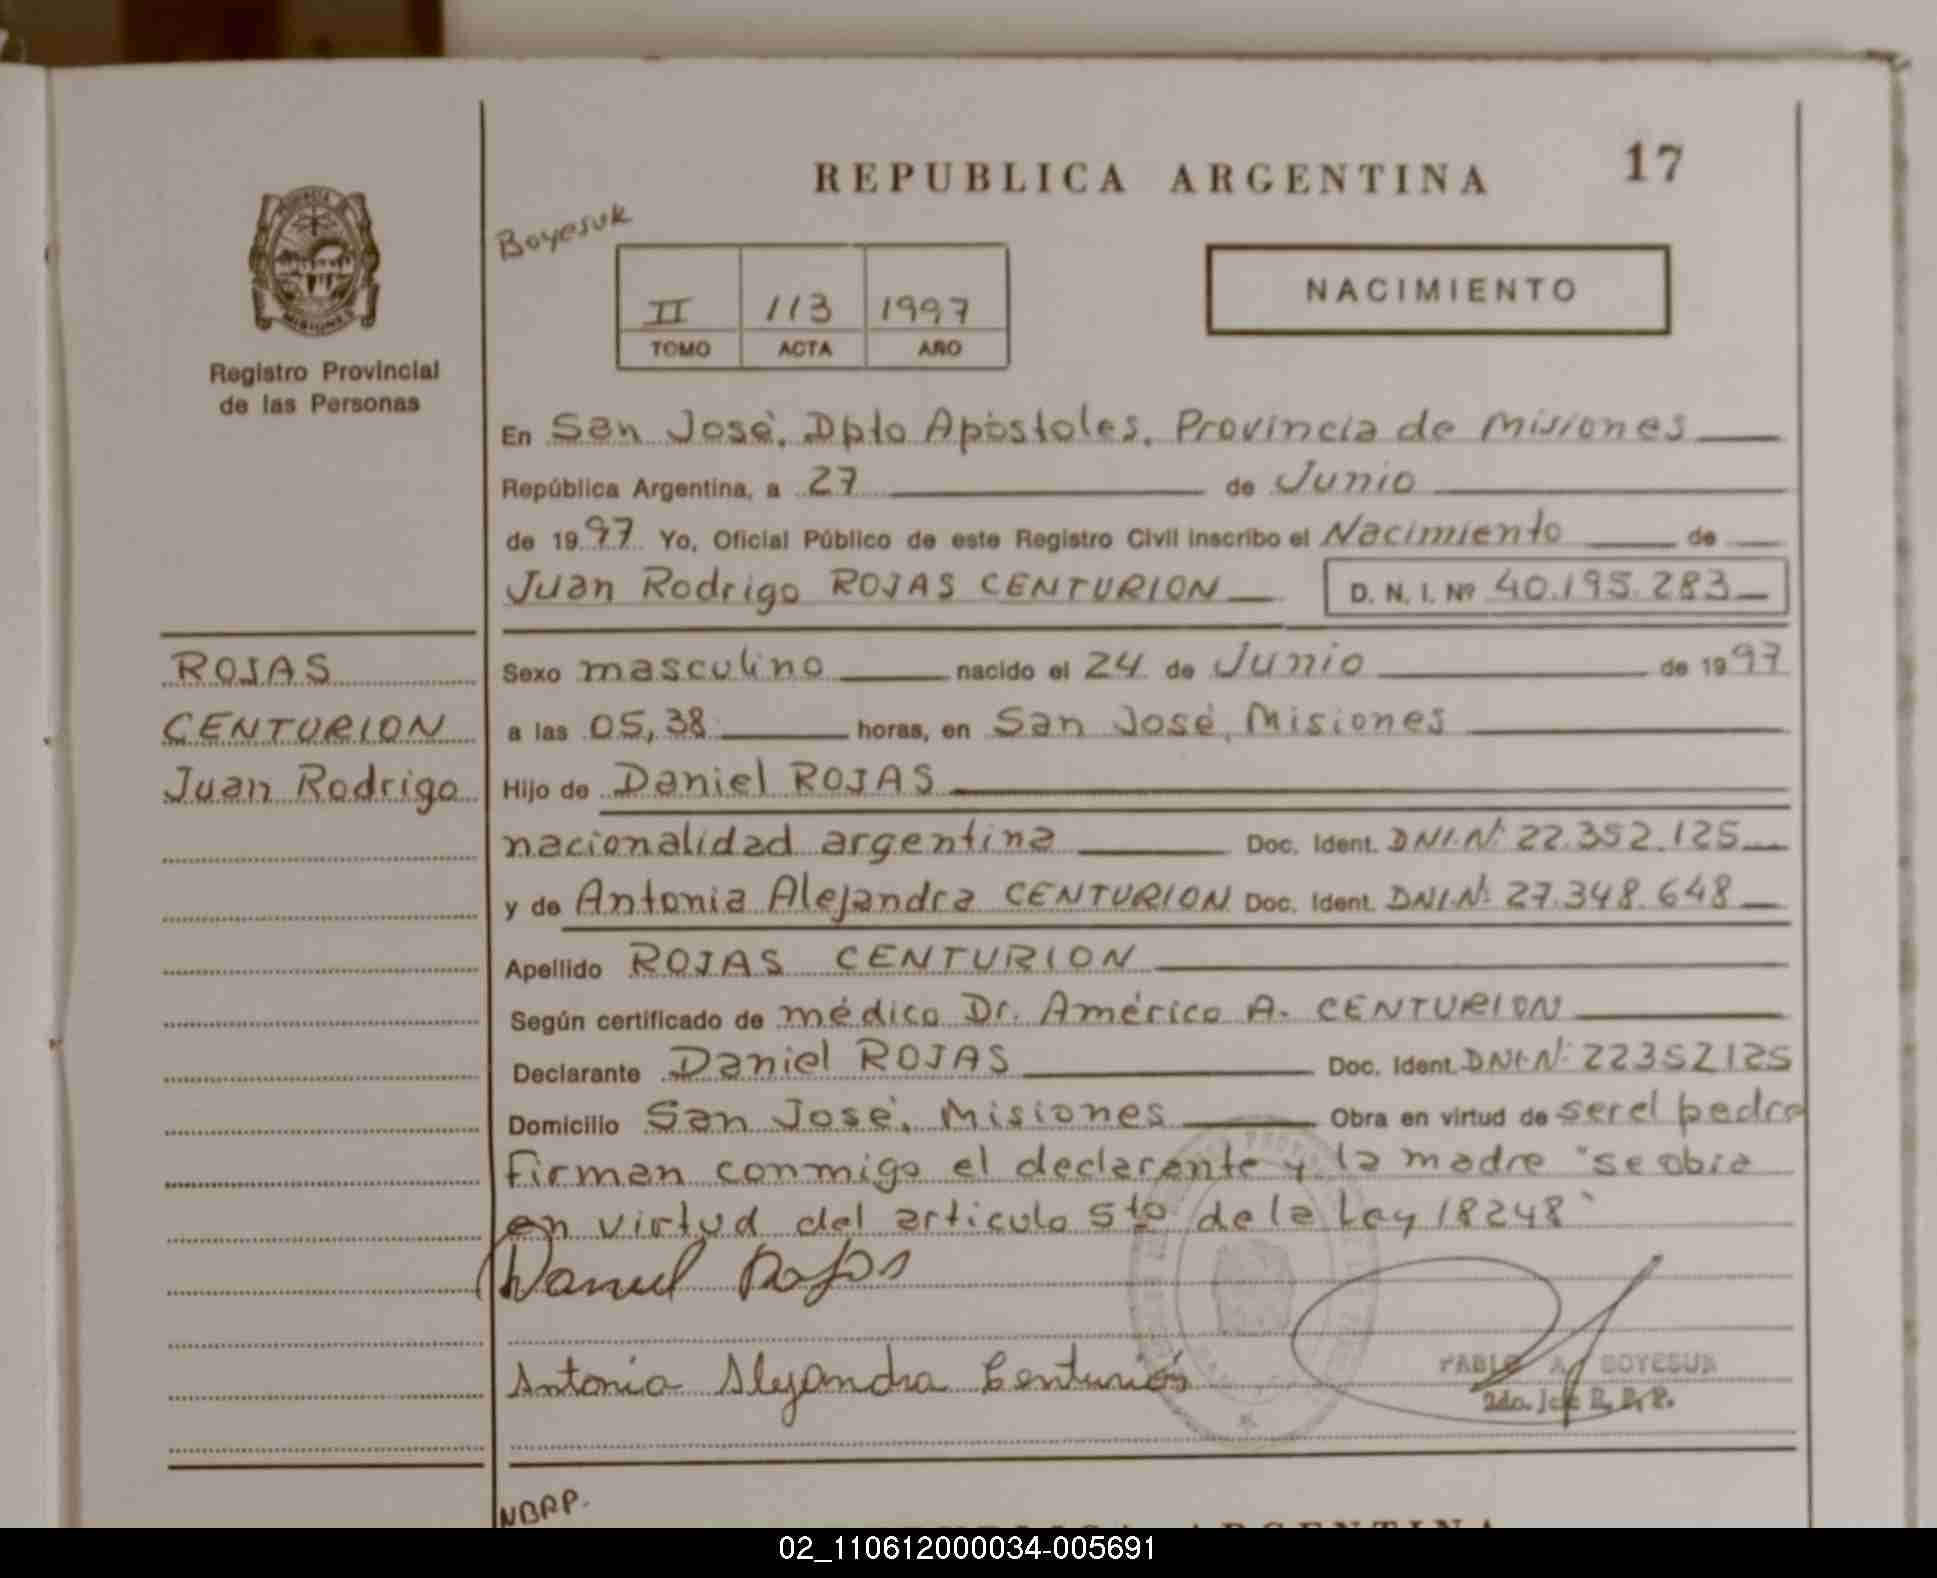 REPUBLICA ARGENTINA
17
Boyesuk
II 113 1997
TOMO ACTA AÑO
NACIMIENTO
MISIONES
Registro Provincial
de las Personas
En San José, Dpto Apóstoles, Provincia de Misiones
República Argentina, a 27 de Junio
de 1997 Yo, Oficial Público de este Registro Civil inscribo el Nacimiento de
Juan Rodrigo ROJAS CENTURION D. N. I. Nº 40.195.283
ROJAS
CENTURION
Juan Rodrigo
Sexo masculino nacido el 24 de Junio de 1997
a las 05,38 horas, en San José, Misiones
Hijo de Daniel ROJAS
nacionalidad argentina Doc. Ident. DNI.Nº 22.352.125
y de Antonia Alejandra CENTURION Doc. Ident. DNI.Nº 27.348.648
Apellido ROJAS CENTURION
Según certificado de médico Dr. Américo A. CENTURION
Declarante Daniel ROJAS Doc. Ident. DNI.Nº 22352125
Domicilio San José, Misiones Obra en virtud de ser el padre
Firman conmigo el declarante y la madre "se obra
en virtud del articulo 5to de la Ley 18248"
Daniel Rojas
Antonia Alejandra Centurión
PABLO A. BOYESUK
2do. Jefe R. P. P.
NBRP.
REPUBLICA ARGENTINA
02_110612000034-005691